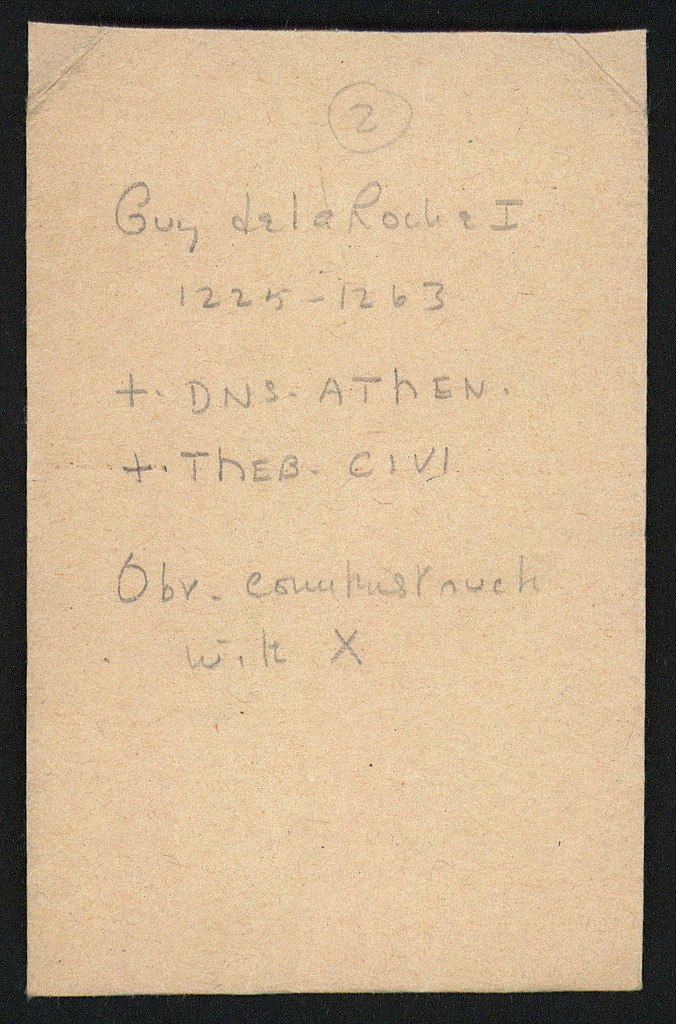 2
Guy de la Roche I
1225-1263
+. DNS. AThEN.
+. ThEB. CIVI
Obv. counterstruck
with X